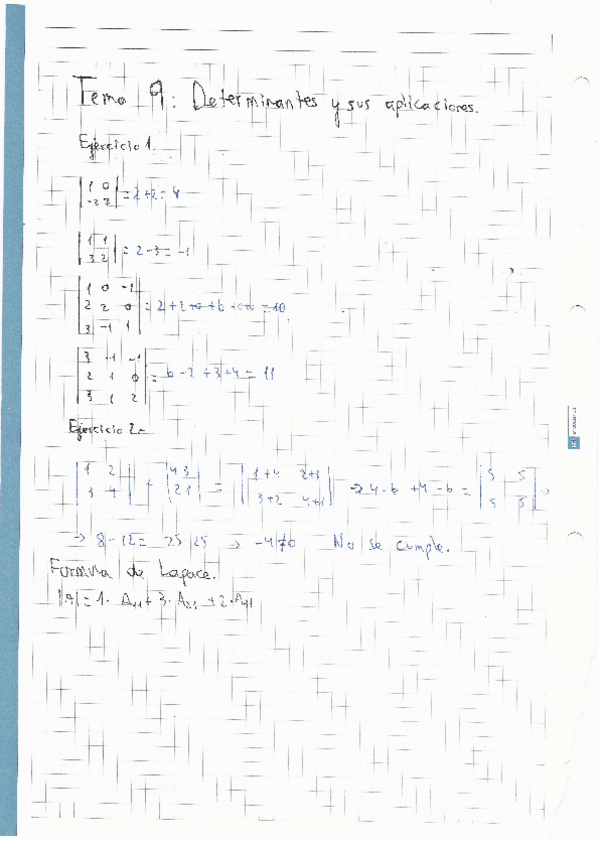 Tema 9: Determinantes y sus aplicaciones.
Ejercicio 1.
| 1 0 |
| -2 2 | = 2+2= 4
| 1 1 |
| 3 2 | = 2-3 = -1
| 1 0 -1 |
| 2 2 0 | = 2+2+0+6
| 3 -1 1 | = 10
| 3 -1 -1 |
| 2 1 0 | = 6-2+3+4= 11
| 3 1 2 |
Ejercicio 2.-
| 1 2 | + | 4 3 | = | 1+4 2+3 | → 4-6+4-6 = | 5 5 | →
| 3 4 | | 2 1 | | 3+2 4+1 | | 5 5 |
→ 8-12= 25 25 → -4≠0 No se cumple.
Formula de Lapace.
|A|=1· A11+3· A21 +2·A41